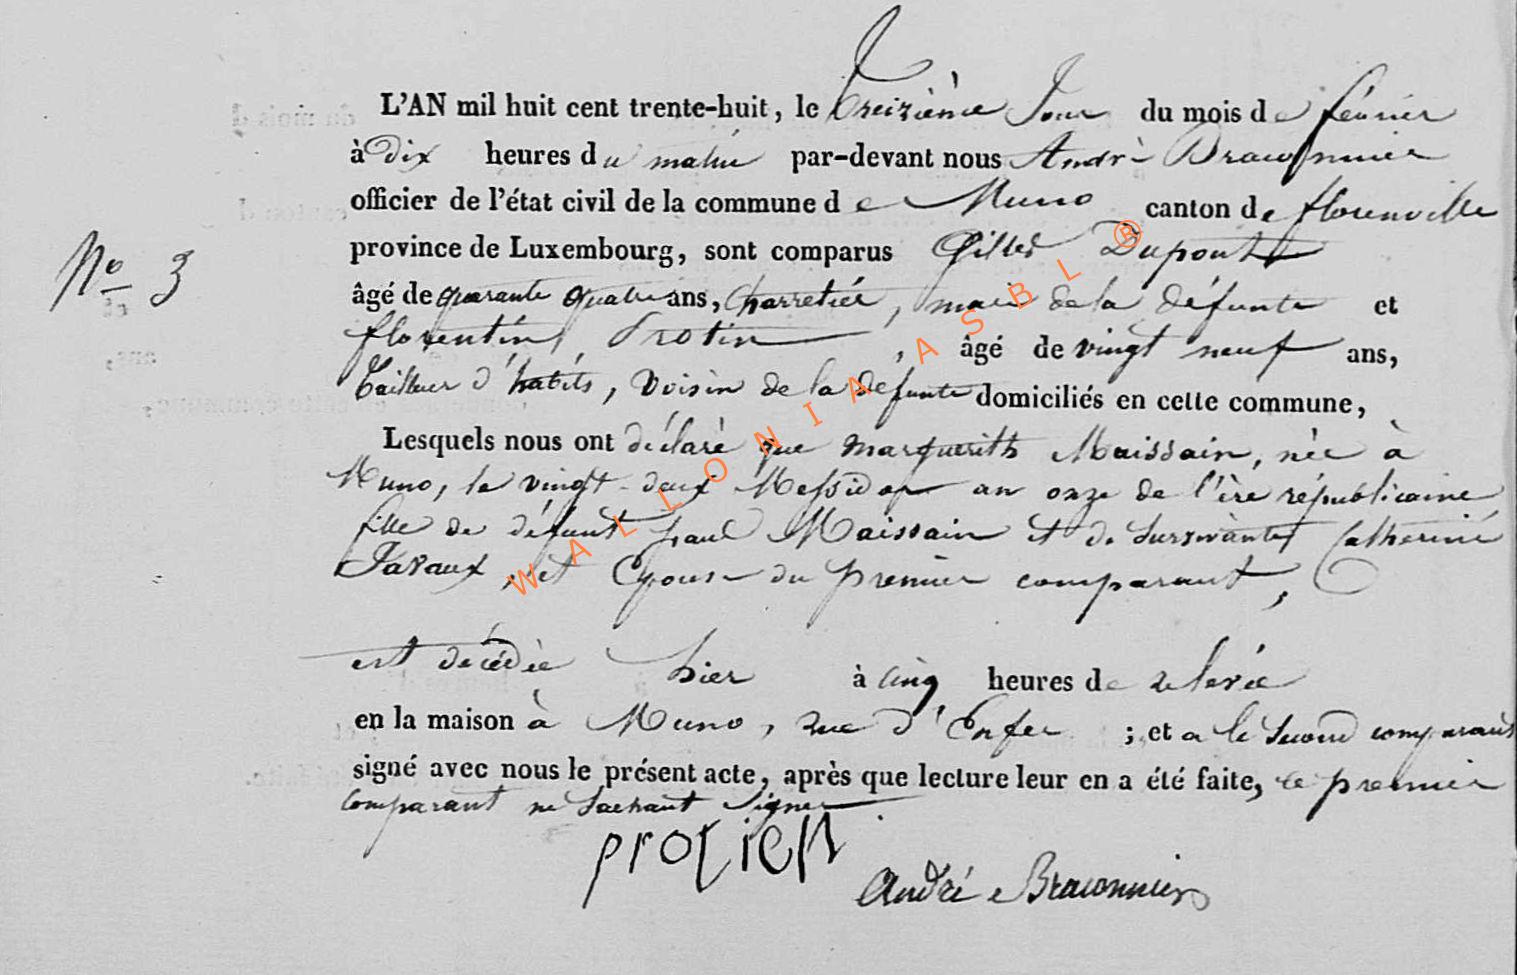 L'AN mil huit cent trente-huit, le treizième Jour du mois de février
à dix heures du matin par-devant nous André Braconnier
officier de l'état civil de la commune de Muno canton de florenville
province de Luxembourg, sont comparus Gilles Dupont
N° 3
âgé de quarante quatre ans, Charretier, mari de la défunte et
florentin Protin, âgé de vingt neuf ans,
tailleur d'habits, voisin de la defunte domiciliés en cette commune,
Lesquels nous ont déclaré que marguerith Maissain, née à
Muno, le vingt-deux Messidor an onze de l'ère républicaine
fille de défunt paul Maissain et de survivante Catherine
Javaux, et Epouse du premier comparant,
est décédée hier à cinq heures de relevée
en la maison à Muno, rue d'Enfer ; et a le second comparant
signé avec nous le présent acte, après que lecture leur en a été faite, le premier
comparant ne sachant signer
protien
André Braconnier
WALLONIA ASBL ®